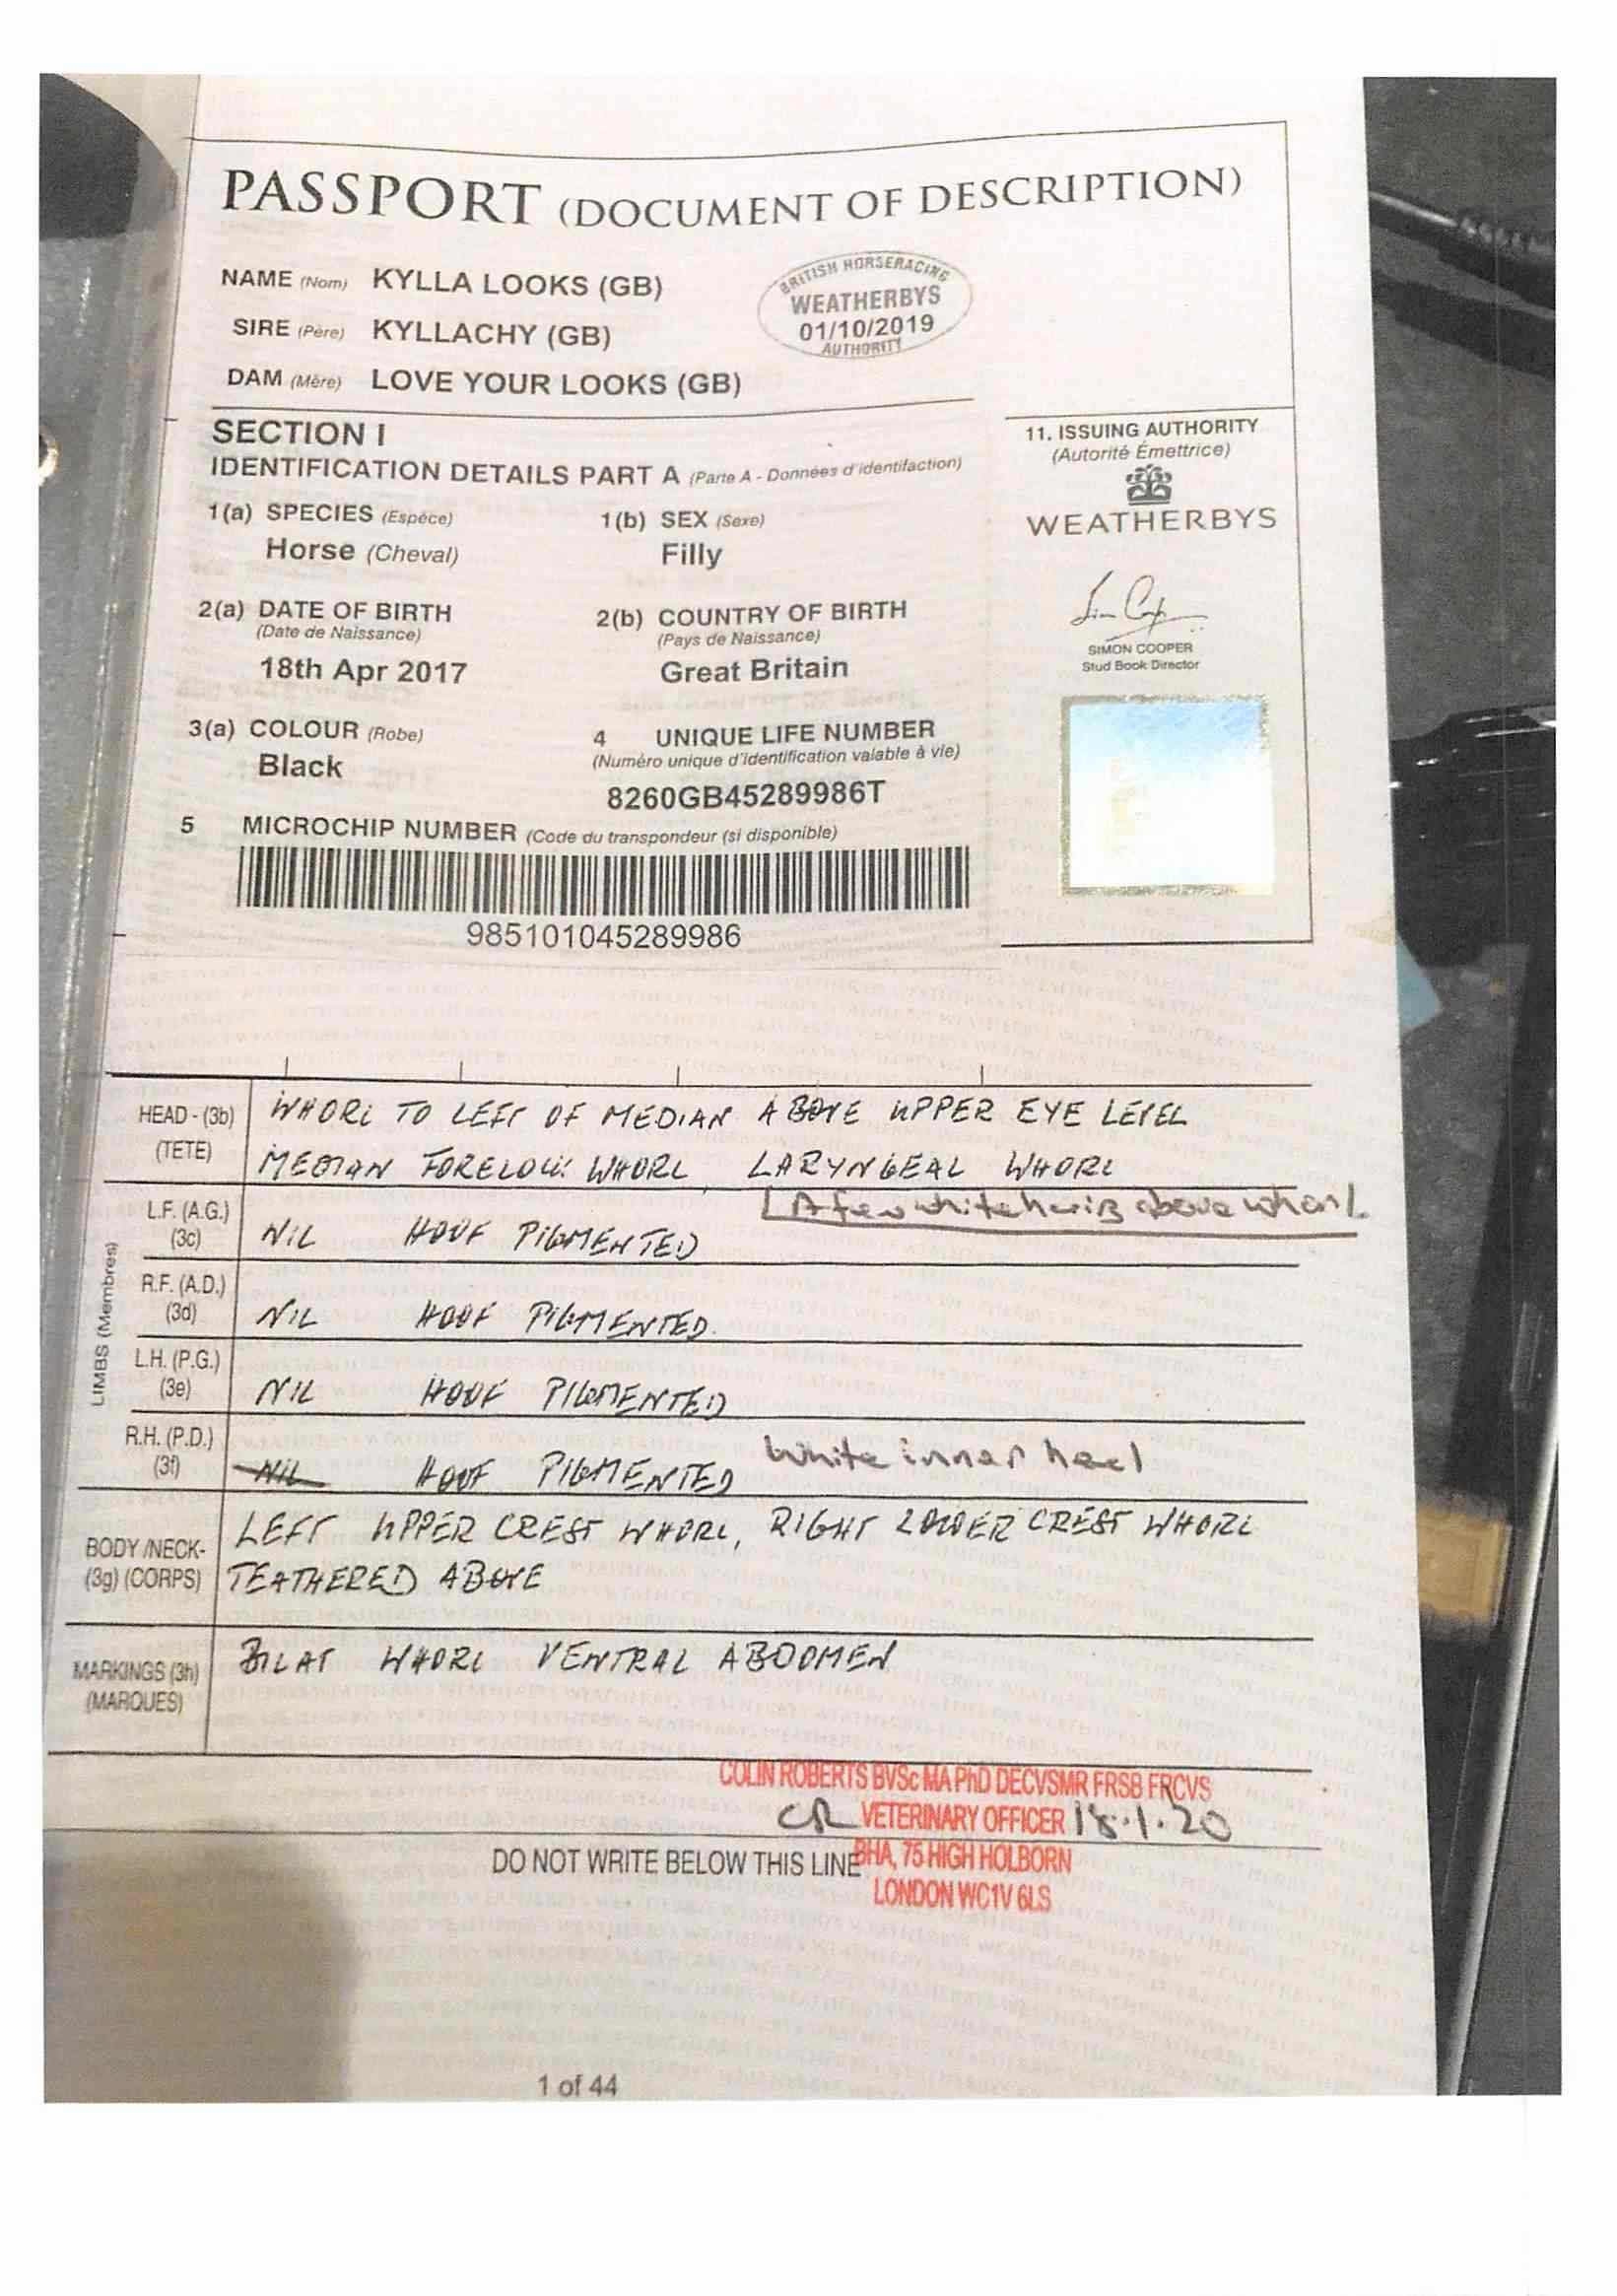 PASSPORT (DOCUMENT OF DESCRIPTION)
NAME (Nom) KYLLA LOOKS (GB)
SIRE (Père) KYLLACHY (GB)
DAM (Mère) LOVE YOUR LOOKS (GB)
BRITISH HORSERACING
WEATHERBYS
01/10/2019
AUTHORITY
SECTION I
IDENTIFICATION DETAILS PART A (Parte A - Données d'identifaction)
1(a) SPECIES (Espèce) 1(b) SEX (Sexe)
Horse (Cheval) Filly
2(a) DATE OF BIRTH 2(b) COUNTRY OF BIRTH
(Date de Naissance) (Pays de Naissance)
18th Apr 2017 Great Britain
3(a) COLOUR (Robe) 4 UNIQUE LIFE NUMBER
Black (Numéro unique d'identification valable à vie)
8260GB45289986T
5 MICROCHIP NUMBER (Code du transpondeur (si disponible)
985101045289986
11. ISSUING AUTHORITY
(Autorité Émettrice)
WEATHERBYS
SIMON COOPER
Stud Book Director
HEAD - (3b) WHORL TO LEFT OF MEDIAN ABOVE UPPER EYE LEVEL
(TETE) MEDIAN FORELOCK WHORL, LARYNGEAL WHORL
A few white hairs above whorl.
LIMBS (Membres)
L.F. (A.G.)
(3c) NIL HOOF PIGMENTED
R.F. (A.D.)
(3d) NIL HOOF PIGMENTED.
L.H. (P.G.)
(3e) NIL HOOF PIGMENTED
R.H. (P.D.)
(3f) NIL HOOF PIGMENTED White inner heel
BODY /NECK- LEFT UPPER CREST WHORL, RIGHT LOWER CREST WHORL
(3g) (CORPS) TEATHERED ABOVE
MARKINGS (3h) BILAT WHORL VENTRAL ABDOMEN
(MARQUES)
COLIN ROBERTS BVSc MA PhD DECVSMR FRSB FRCVS
CR VETERINARY OFFICER 18.1.20
DO NOT WRITE BELOW THIS LINE
BHA, 75 HIGH HOLBORN
LONDON WC1V 6LS
1 of 44